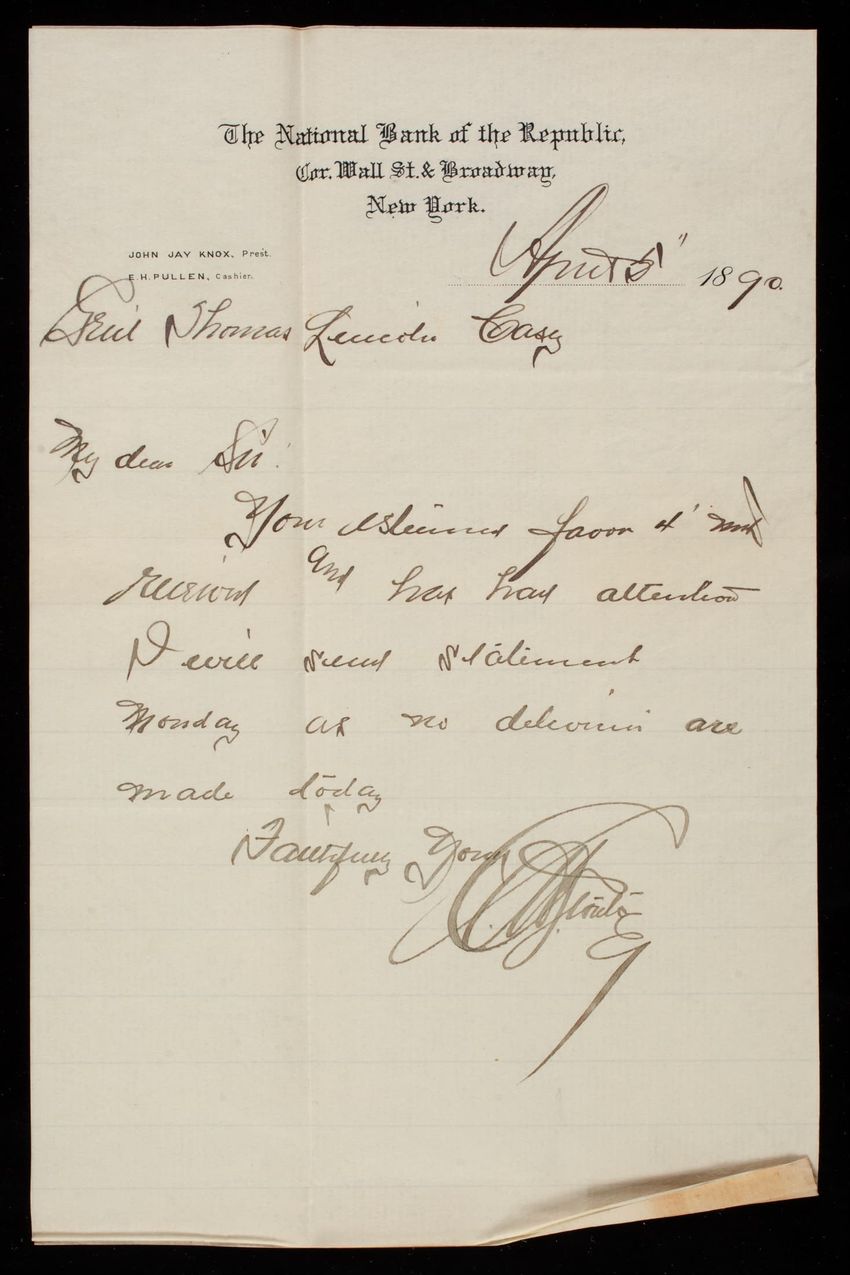 The National Bank of the Republic,
Cor. Wall St. & Broadway,
New York.
JOHN JAY KNOX, Prest.
E.H. PULLEN, Cashier.
April 5" 1890.
Genl Thomas Lincoln Casey
My dear Sir:
Your esteemed favor 4' inst
received and has had attention
I will send statement
Monday as no deliveries are
made today
Faithfully Yours